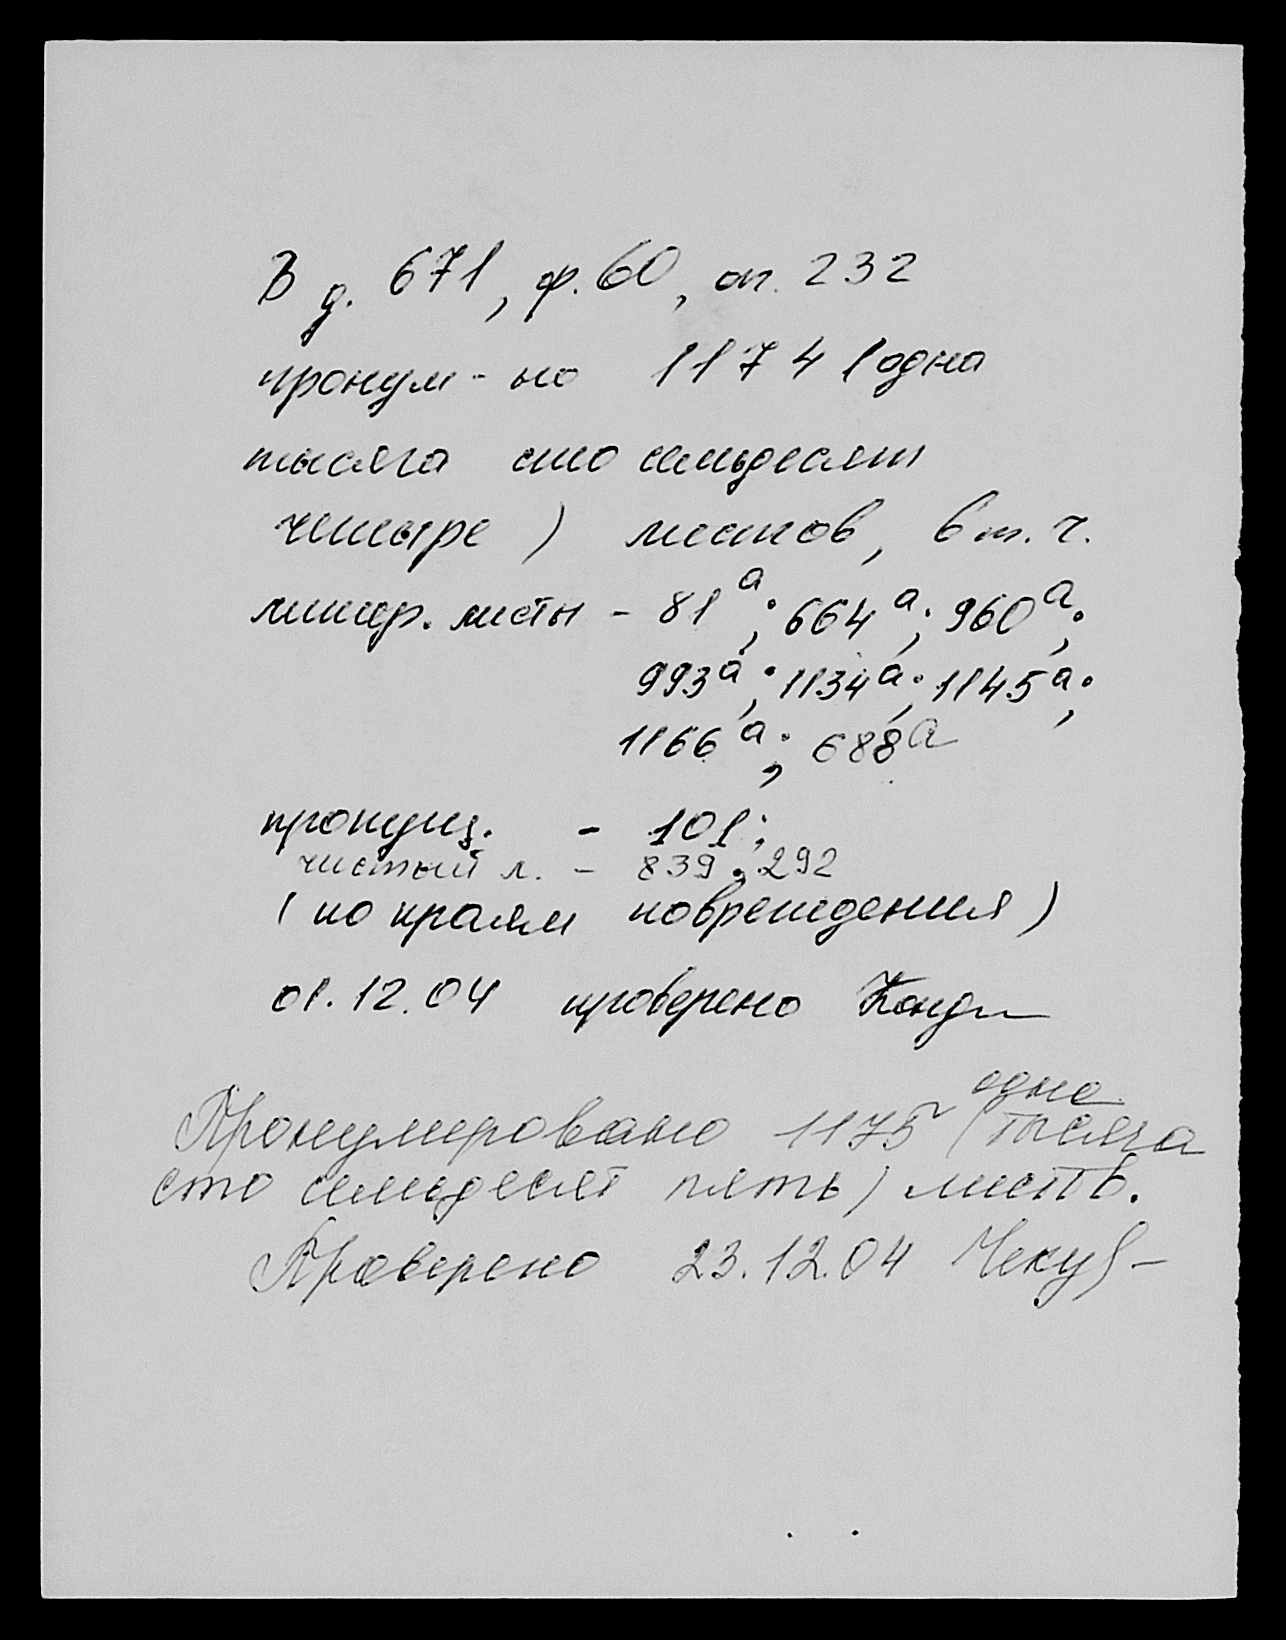 В д. 671, ф. 60, оп. 232
пронум-но 1174 (одна
тысяча сто семьдесят
четыре) листов, в т. ч.
литер. листы - 81а; 664а; 960а;
993а; 1134а; 1145а;
1166а; 688а
пропущ. - 101;
чистый л. - 839; 292
(по краям повреждения)
01.12.04 проверено
одна
Пронумеровано 1175 (тысяча
сто семьдесят пять) листов.
Проверено 23.12.04